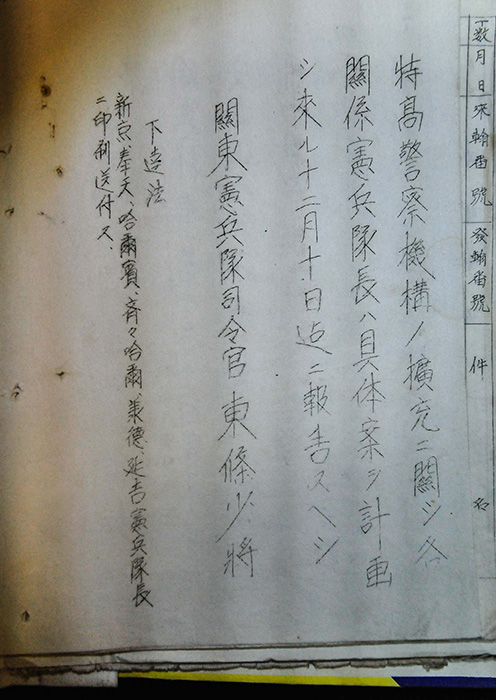 丁数
月日
來翰番號
發翰番號
件名
特高警察機構ノ擴充ニ關シ各
關係憲兵隊長ハ具体案ヲ計画
シ來ル十二月十日迄ニ報告スヘシ
關東憲兵隊司令官 東條少將
下達法
新京、奉天、哈爾賓、斉々哈爾、承徳、延吉憲兵隊長
ニ印刷送付ス、